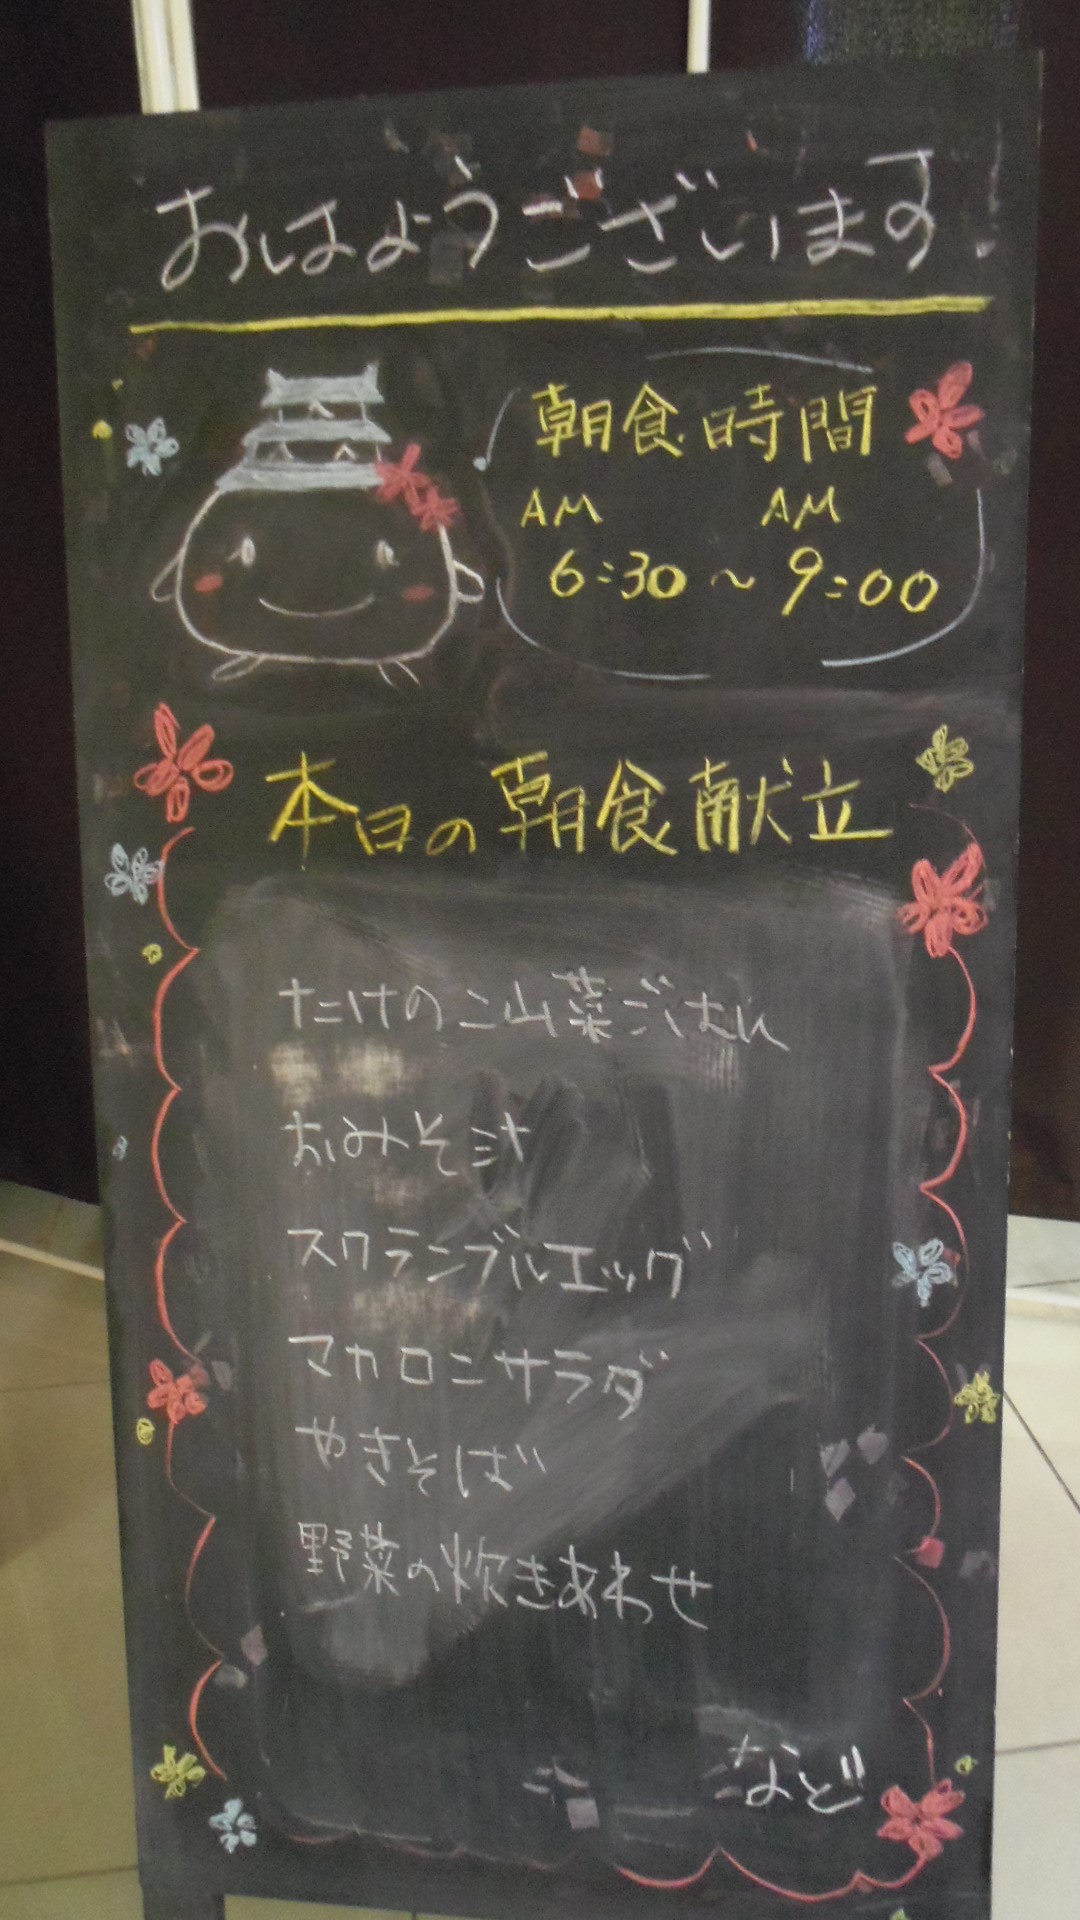 おはようございます!
朝食時間
AM AM
6:30~9:00
本日の朝食献立
たけのこ山菜ごはん
おみそ汁
スクランブルエッグ
マカロニサラダ
やきそば
野菜の炊きあわせ
など